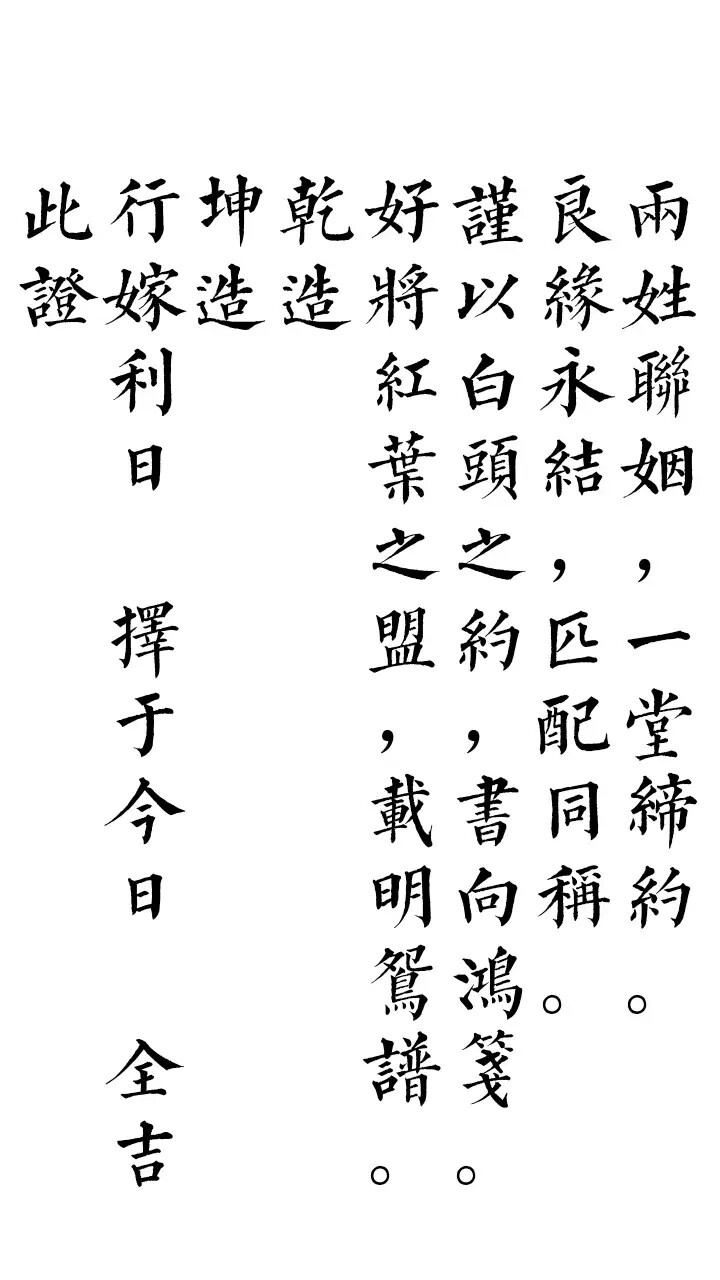 兩姓聯姻，一堂締約。
良緣永結，匹配同稱。
謹以白頭之約，書向鴻箋。
好將紅葉之盟，載明鴛譜。
乾造
坤造
行嫁利日　擇于今日　全吉
此證